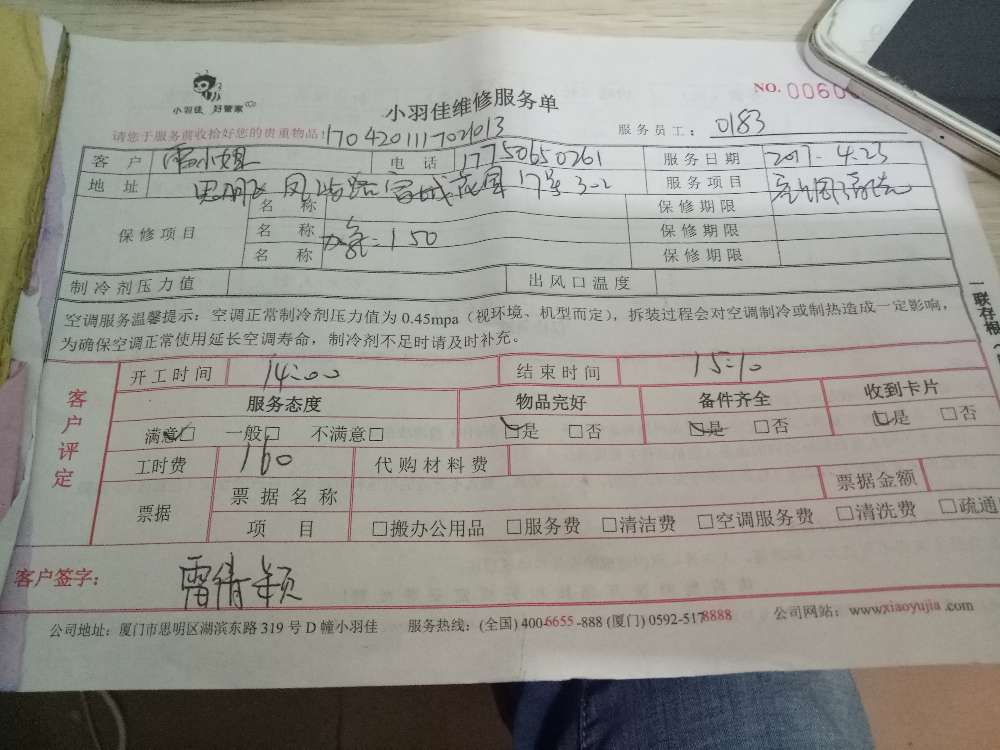 小羽佳 好管家
小羽佳维修服务单
NO. 00600
请您于服务前收拾好您的贵重物品! 1704201117021013
服务员工: 0183
客户 雷小姐 电话 17750650261 服务日期 2017-4.23
地址 思明区凤屿路富城花园17号3-2 服务项目 空调清洗
保修项目 名称 保修期限
名称 加氟=150 保修期限
名称 保修期限
制冷剂压力值 出风口温度
空调服务温馨提示:空调正常制冷剂压力值为 0.45mpa(视环境、机型而定),拆装过程会对空调制冷或制热造成一定影响,
为确保空调正常使用延长空调寿命,制冷剂不足时请及时补充。
一联存根
客户评定
开工时间 14:00 结束时间 15:10
服务态度 物品完好 备件齐全 收到卡片
满意□ 一般□ 不满意□ □是 □否 □是 □否 □是 □否
工时费 160 代购材料费
票据 票据名称 票据金额
项目 □搬办公用品 □服务费 □清洁费 □空调服务费 □清洗费 □疏通
客户签字: 雷倩颖
公司地址:厦门市思明区湖滨东路 319 号 D 幢小羽佳 服务热线:(全国) 400-6655-888 (厦门) 0592-5178888 公司网站:www.xiaoyujia.com